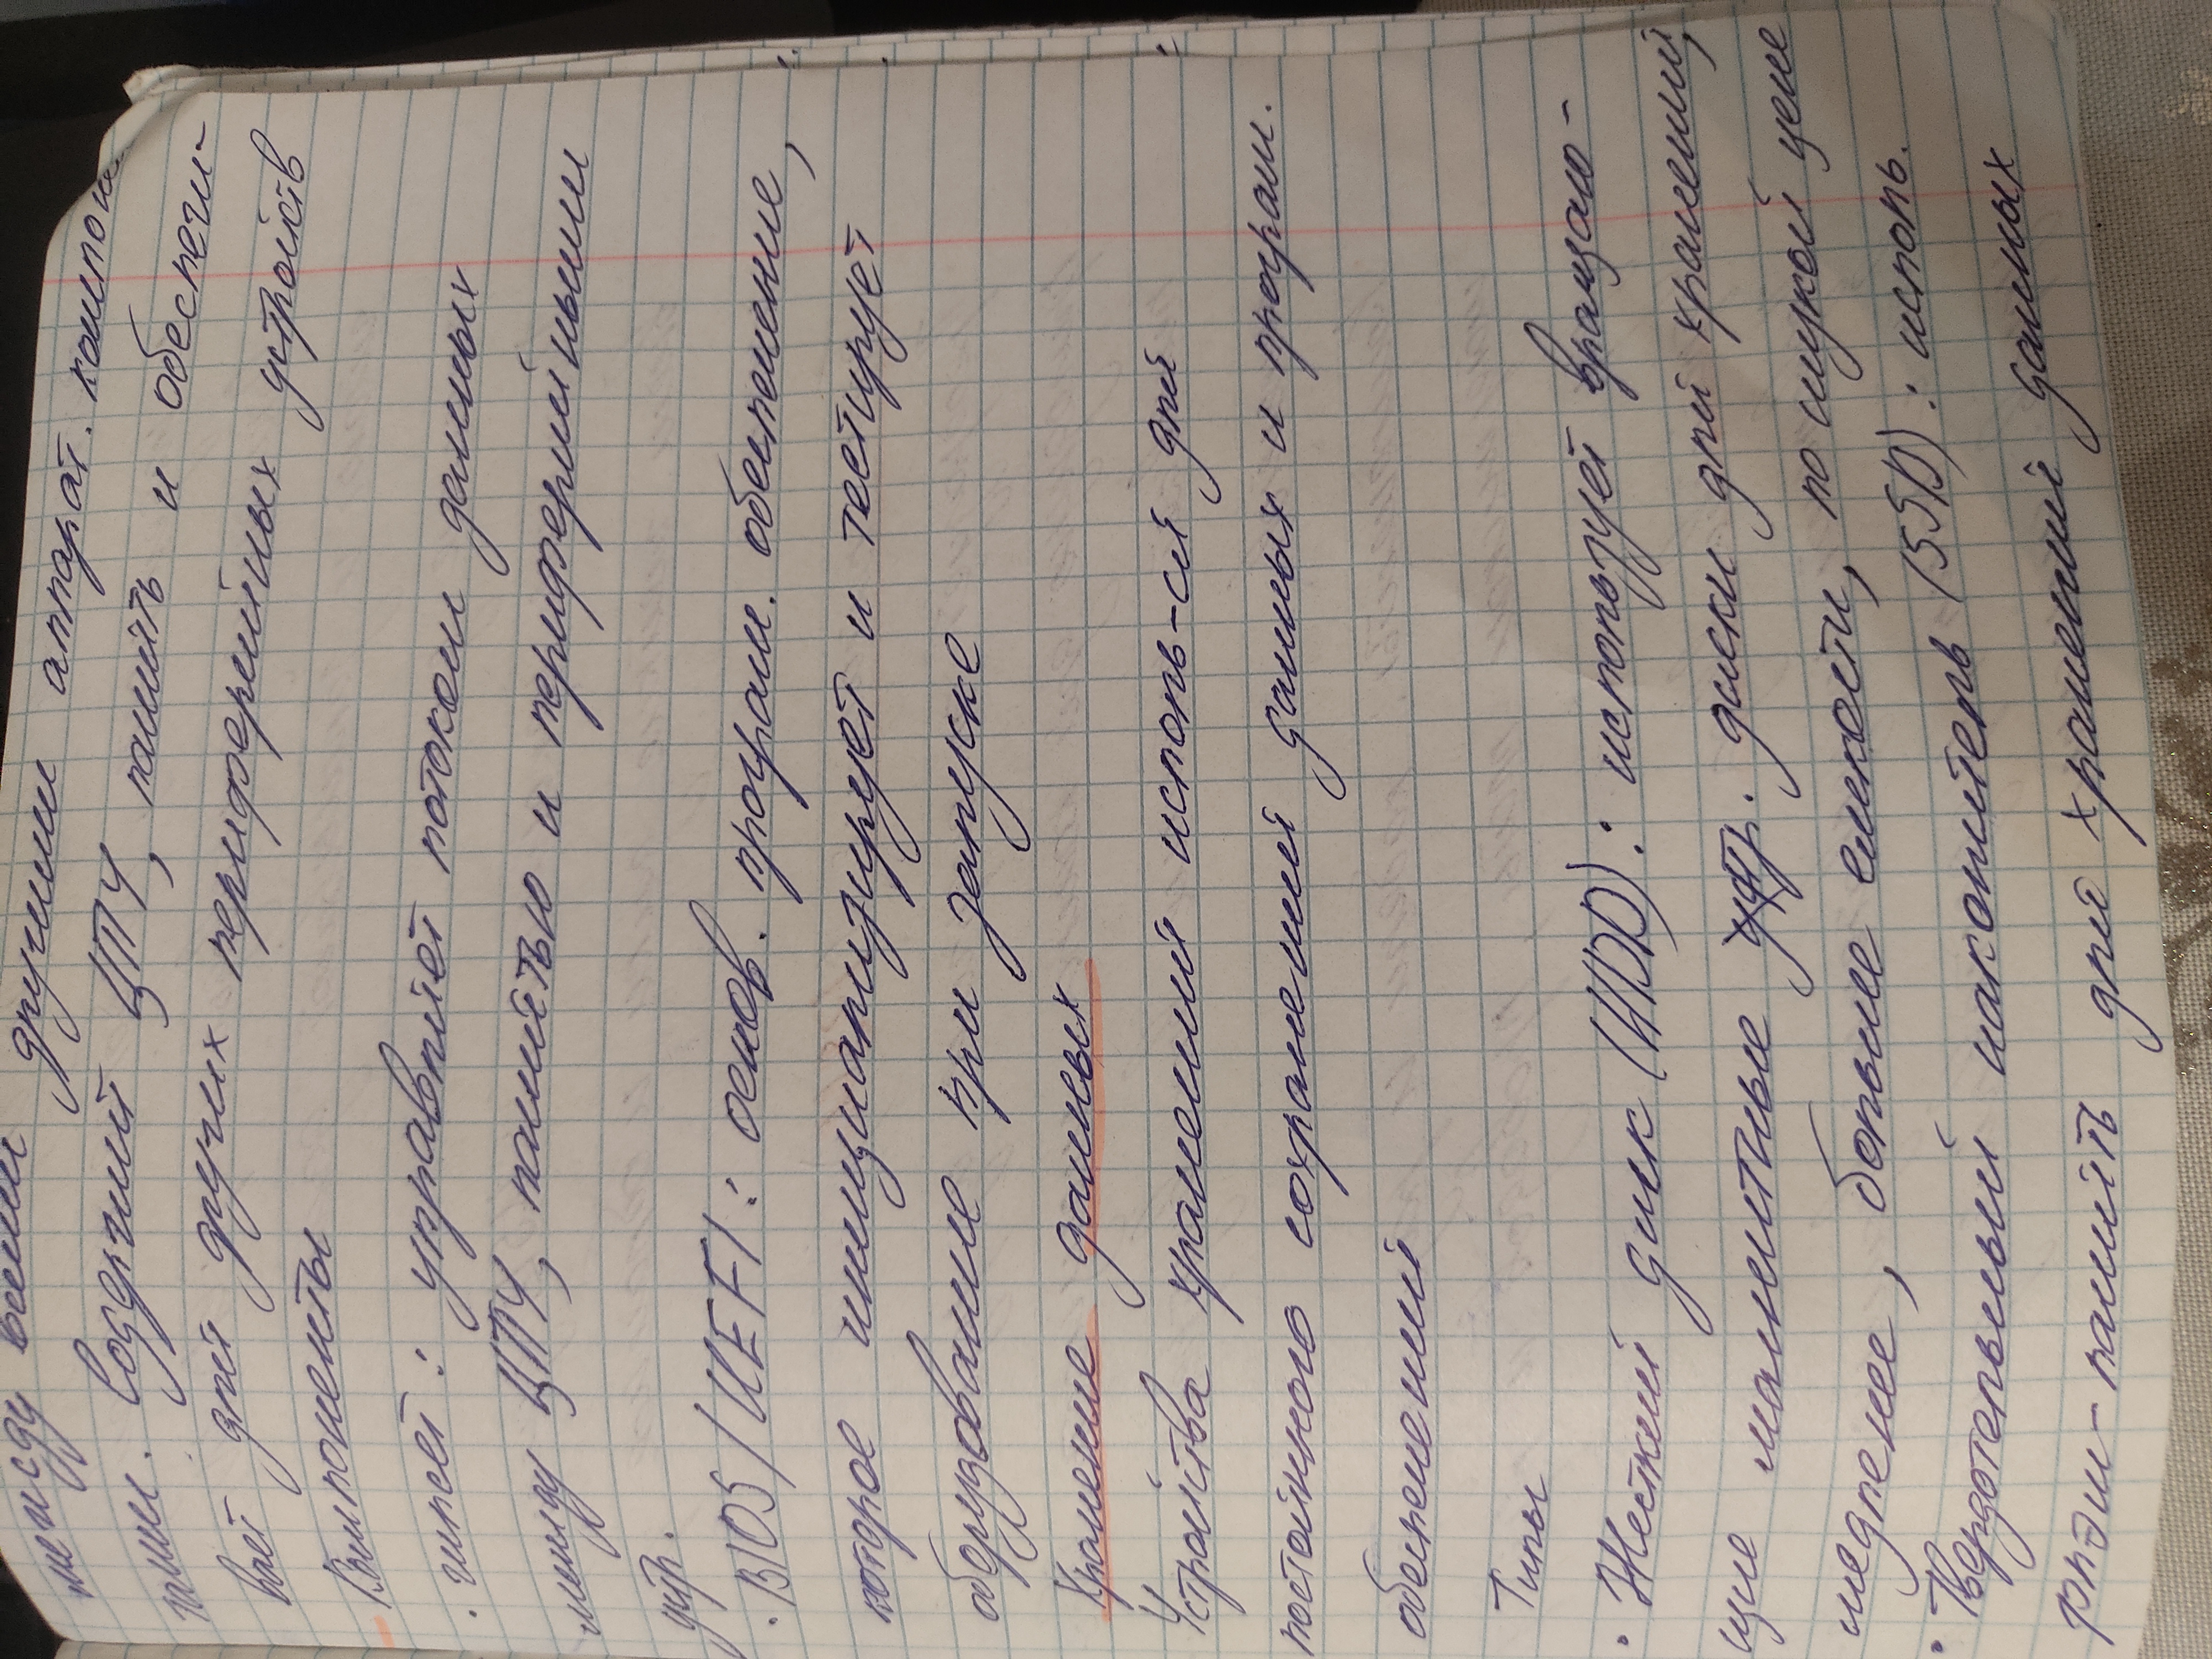 между всеми другими аппарат. компонен
тами. Содержит ЦПУ, память и обеспечи-
вает для других периферийных устройств
Компоненты
· чипсет: управляет потоком данных
между ЦПУ, памятью и периферийными
устр.
· BIOS/UEFI: основ. програм. обеспечение,
которое инициализирует и тестирует
оборудование при запуске
Хранение данных
Устройства хранения исполь-ся для
постоянного сохранения данных и програм.
обеспечения
Типы
· Жесткий диск (HDD): использует вращаю-
щие магнитные устр. диски для хранения,
медленнее, больше емкости, по низкой цене
· Твердотельный накопитель (SSD): исполь.
флэш-память для хранения данных